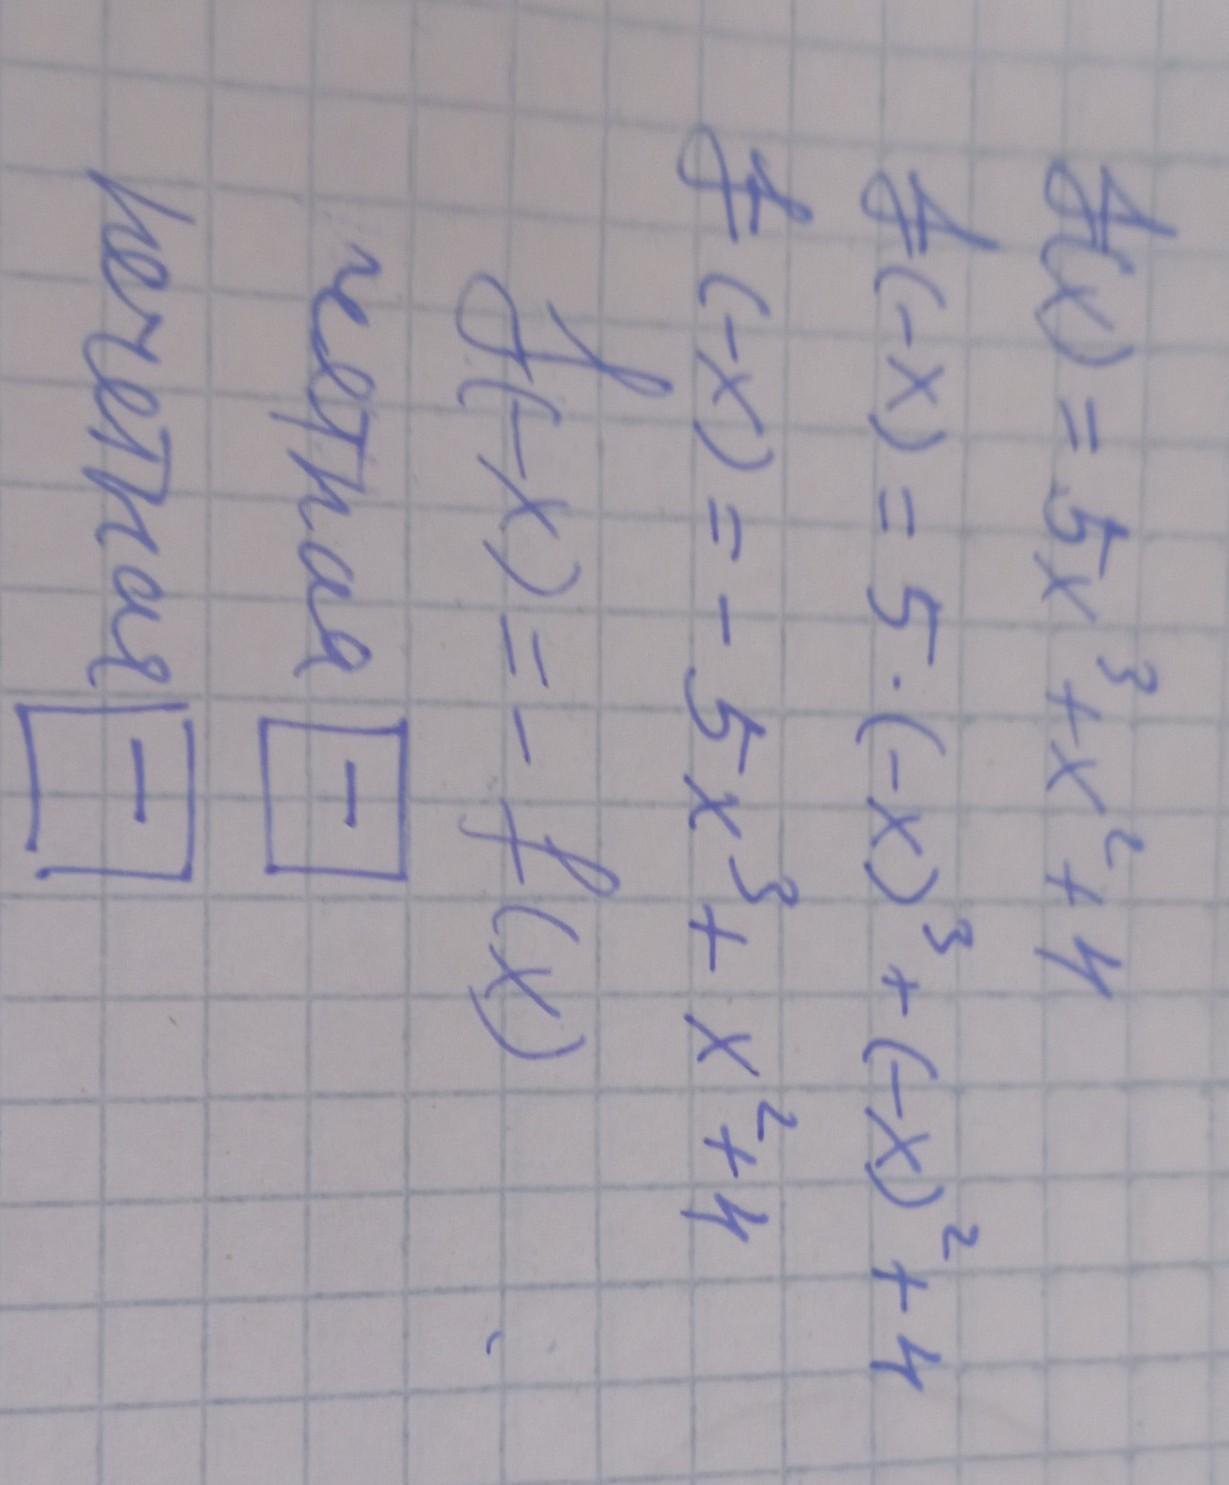 f(x) = 5x³ + x² + 4
f(-x) = 5·(-x)³ + (-x)² + 4
f(-x) = -5x³ + x² + 4
f(-x) = - f(x)
четная -
нечетная -